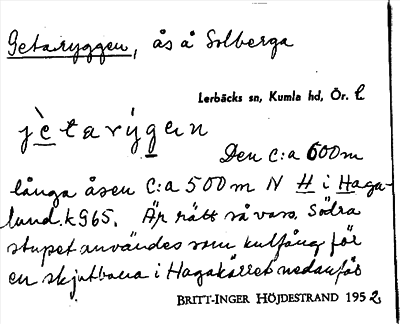 Getaryggen, ås å Solberga
Lerbäcks sn, Kumla hd, Ör. l
jètarýgen
Den c:a 600 m
långa åsen c:a 500 m N H i Haga-
lund. k965. Är rätt så vass. Södra
stupet användes som kulfång för
en skjutbana i Hagakärret nedanför
BRITT-INGER HÖJDESTRAND 1952